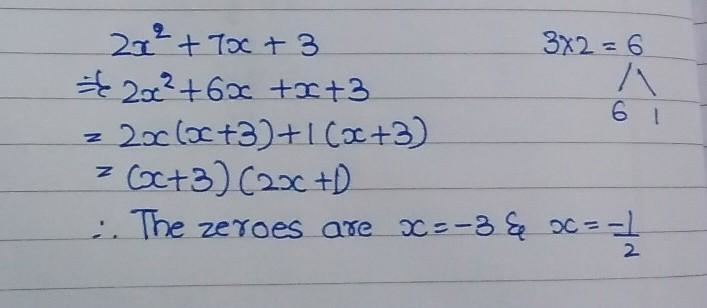 2x² + 7x + 3
3x2 = 6
6 1
⇒ 2x² + 6x + x + 3
= 2x(x+3)+1(x+3)
= (x+3)(2x+1)
∴ The zeroes are x = -3 & x = -1/2